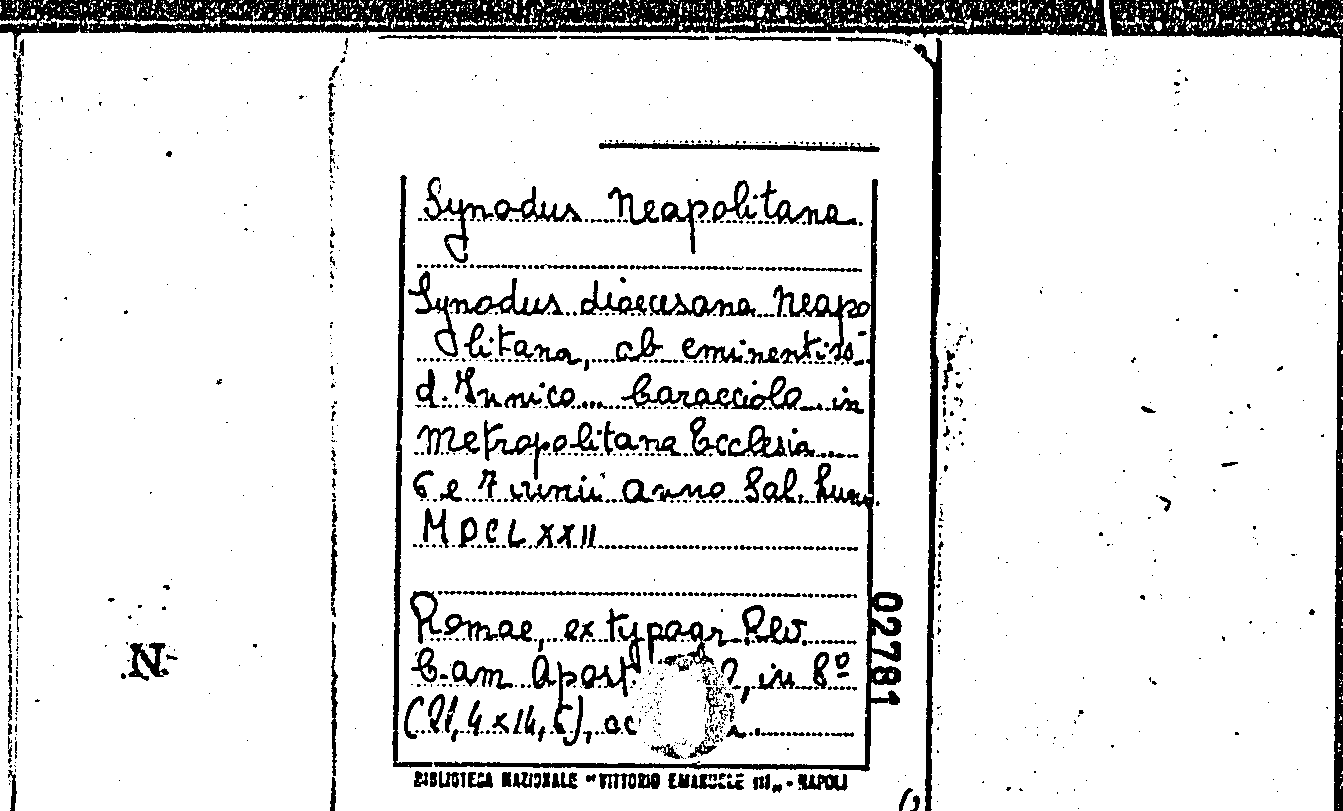 Synodus Neapolitana
Synodus dioecesana Neapo
litana, ab eminentiss.
d. Innico... Caracciolo... in
Metropolitana Ecclesia...
6 e 7 iunii anno Sal. hum.
MDCLXXII
Romae, ex typogr. Rev.
Cam. Apost. in 8º
(21,4 x 14,5),
02781
N.
BIBLIOTECA NAZIONALE "VITTORIO EMANUELE III„ - NAPOLI